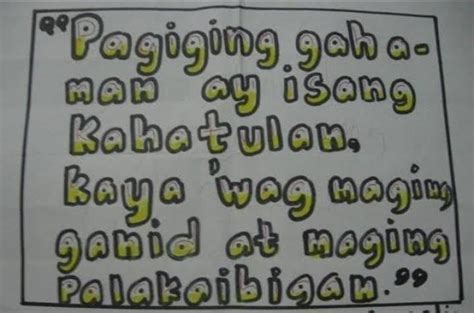 "Pagiging gaha-
man ay isang
Kahatulan,
kaya 'wag maging
ganid at maging
palakaibigan."